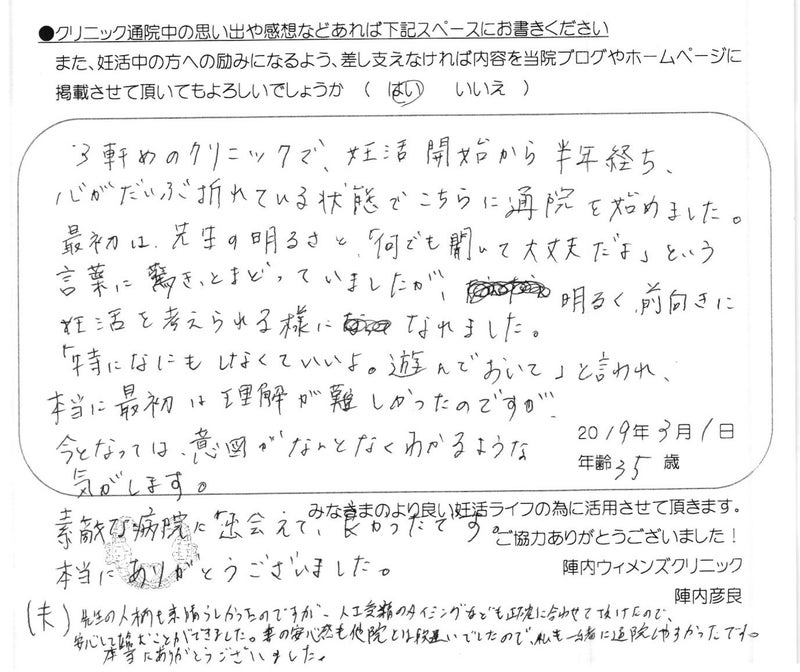 ●クリニック通院中の思い出や感想などあれば下記スペースにお書きください
また、妊活中の方への励みになるよう、差し支えなければ内容を当院ブログやホームページに
掲載させて頂いてもよろしいでしょうか（ はい いいえ ）
3軒めのクリニックで、妊活開始から半年経ち、
心がだいぶ折れている状態でこちらに通院を始めました。
最初は、先生の明るさと、「何でも聞いて大丈夫だよ」という
言葉に驚き、とまどっていましたが、 明るく、前向きに
妊活を考えられる様に なれました。
「特になにもしなくていいよ。遊んでおいて」と言われ、
本当に最初は理解が難しかったのですが、
今となっては、意図がなんとなくわかるような
気がします。
2019年3月1日
年齢35歳
みなさまのより良い妊活ライフの為に活用させて頂きます。
素敵な病院に出会えて、良かったです。
ご協力ありがとうございました！
本当にありがとうございました。
陣内ウィメンズクリニック
陣内彦良
(夫) 先生の人柄も素晴らしかったのですが、人工受精のタイミングなども正確に合わせて頂けたので、
安心して臨むことができました。妻の安心感も他院とは段違いでしたので、私も一緒に通院しやすかったです。
本当にありがとうございました。